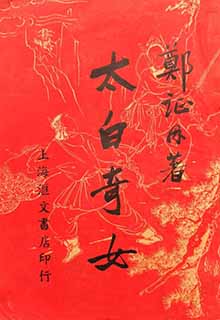 鄭証因著
太白奇女
上海滙文書店印行